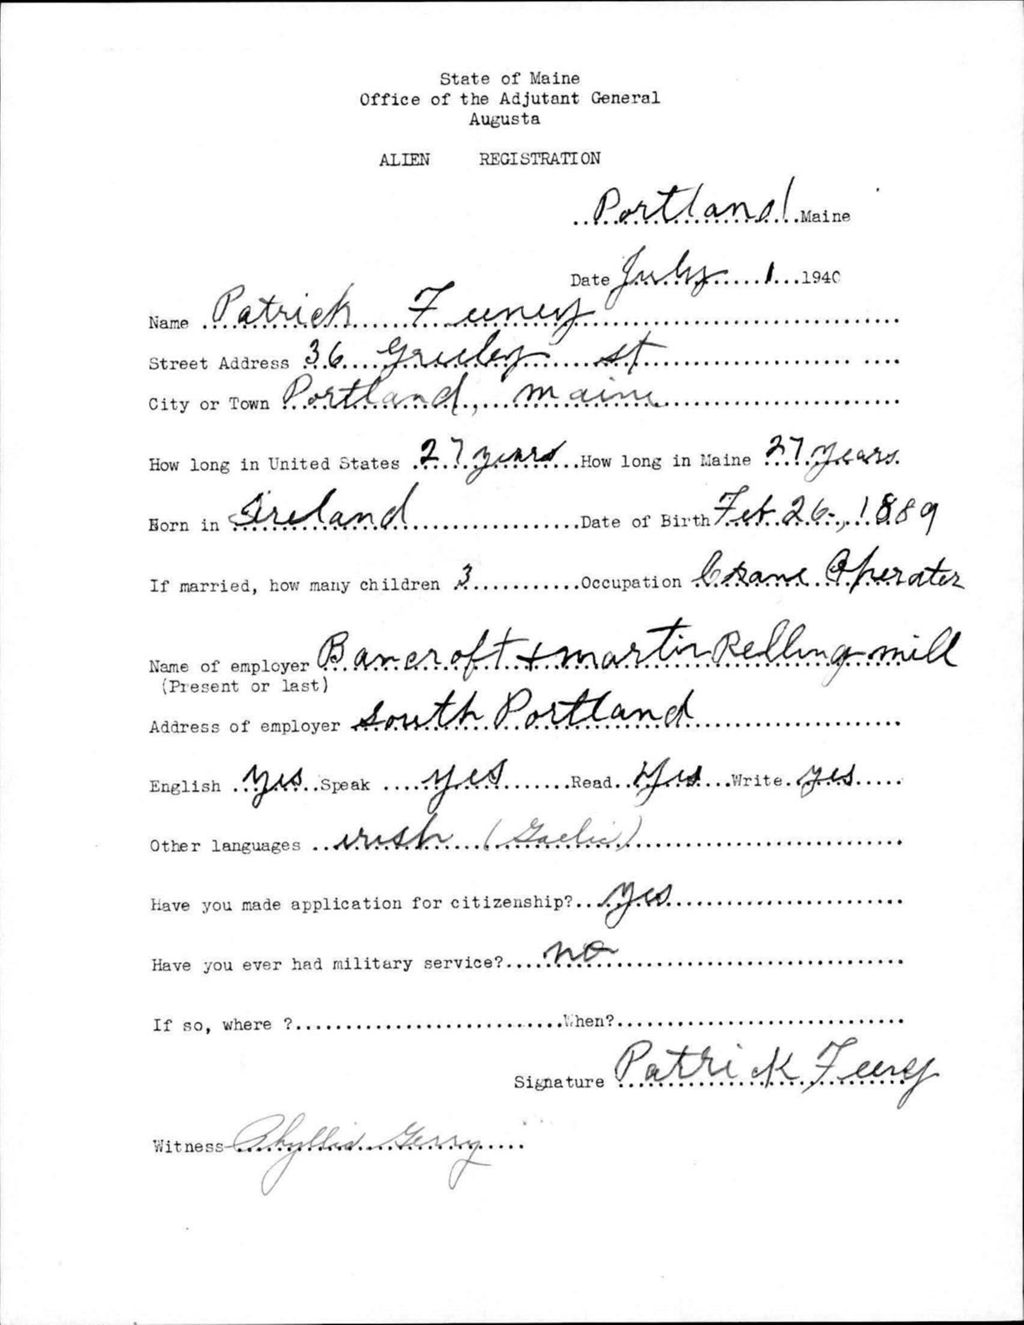 State of Maine
Office of the Adjutant General
Augusta
ALIEN REGISTRATION
Portland Maine
Date July 1 1940
Name Patrick Feeney
Street Address 36 Greeley st
City or Town Portland, Maine
How long in United States 27 years How long in Maine 27 years.
Born in Ireland Date of Birth Feb. 26, 1889
If married, how many children 3 Occupation Crane Operater
Name of employer Bancroft + martin Rolling mill
(Present or last)
Address of employer South Portland
English yes Speak yes Read yes Write yes
Other languages irish (Gaelic)
Have you made application for citizenship? yes
Have you ever had military service? no
If so, where ? When?
Signature Patrick Feeney
Witness Phyllis Gerry